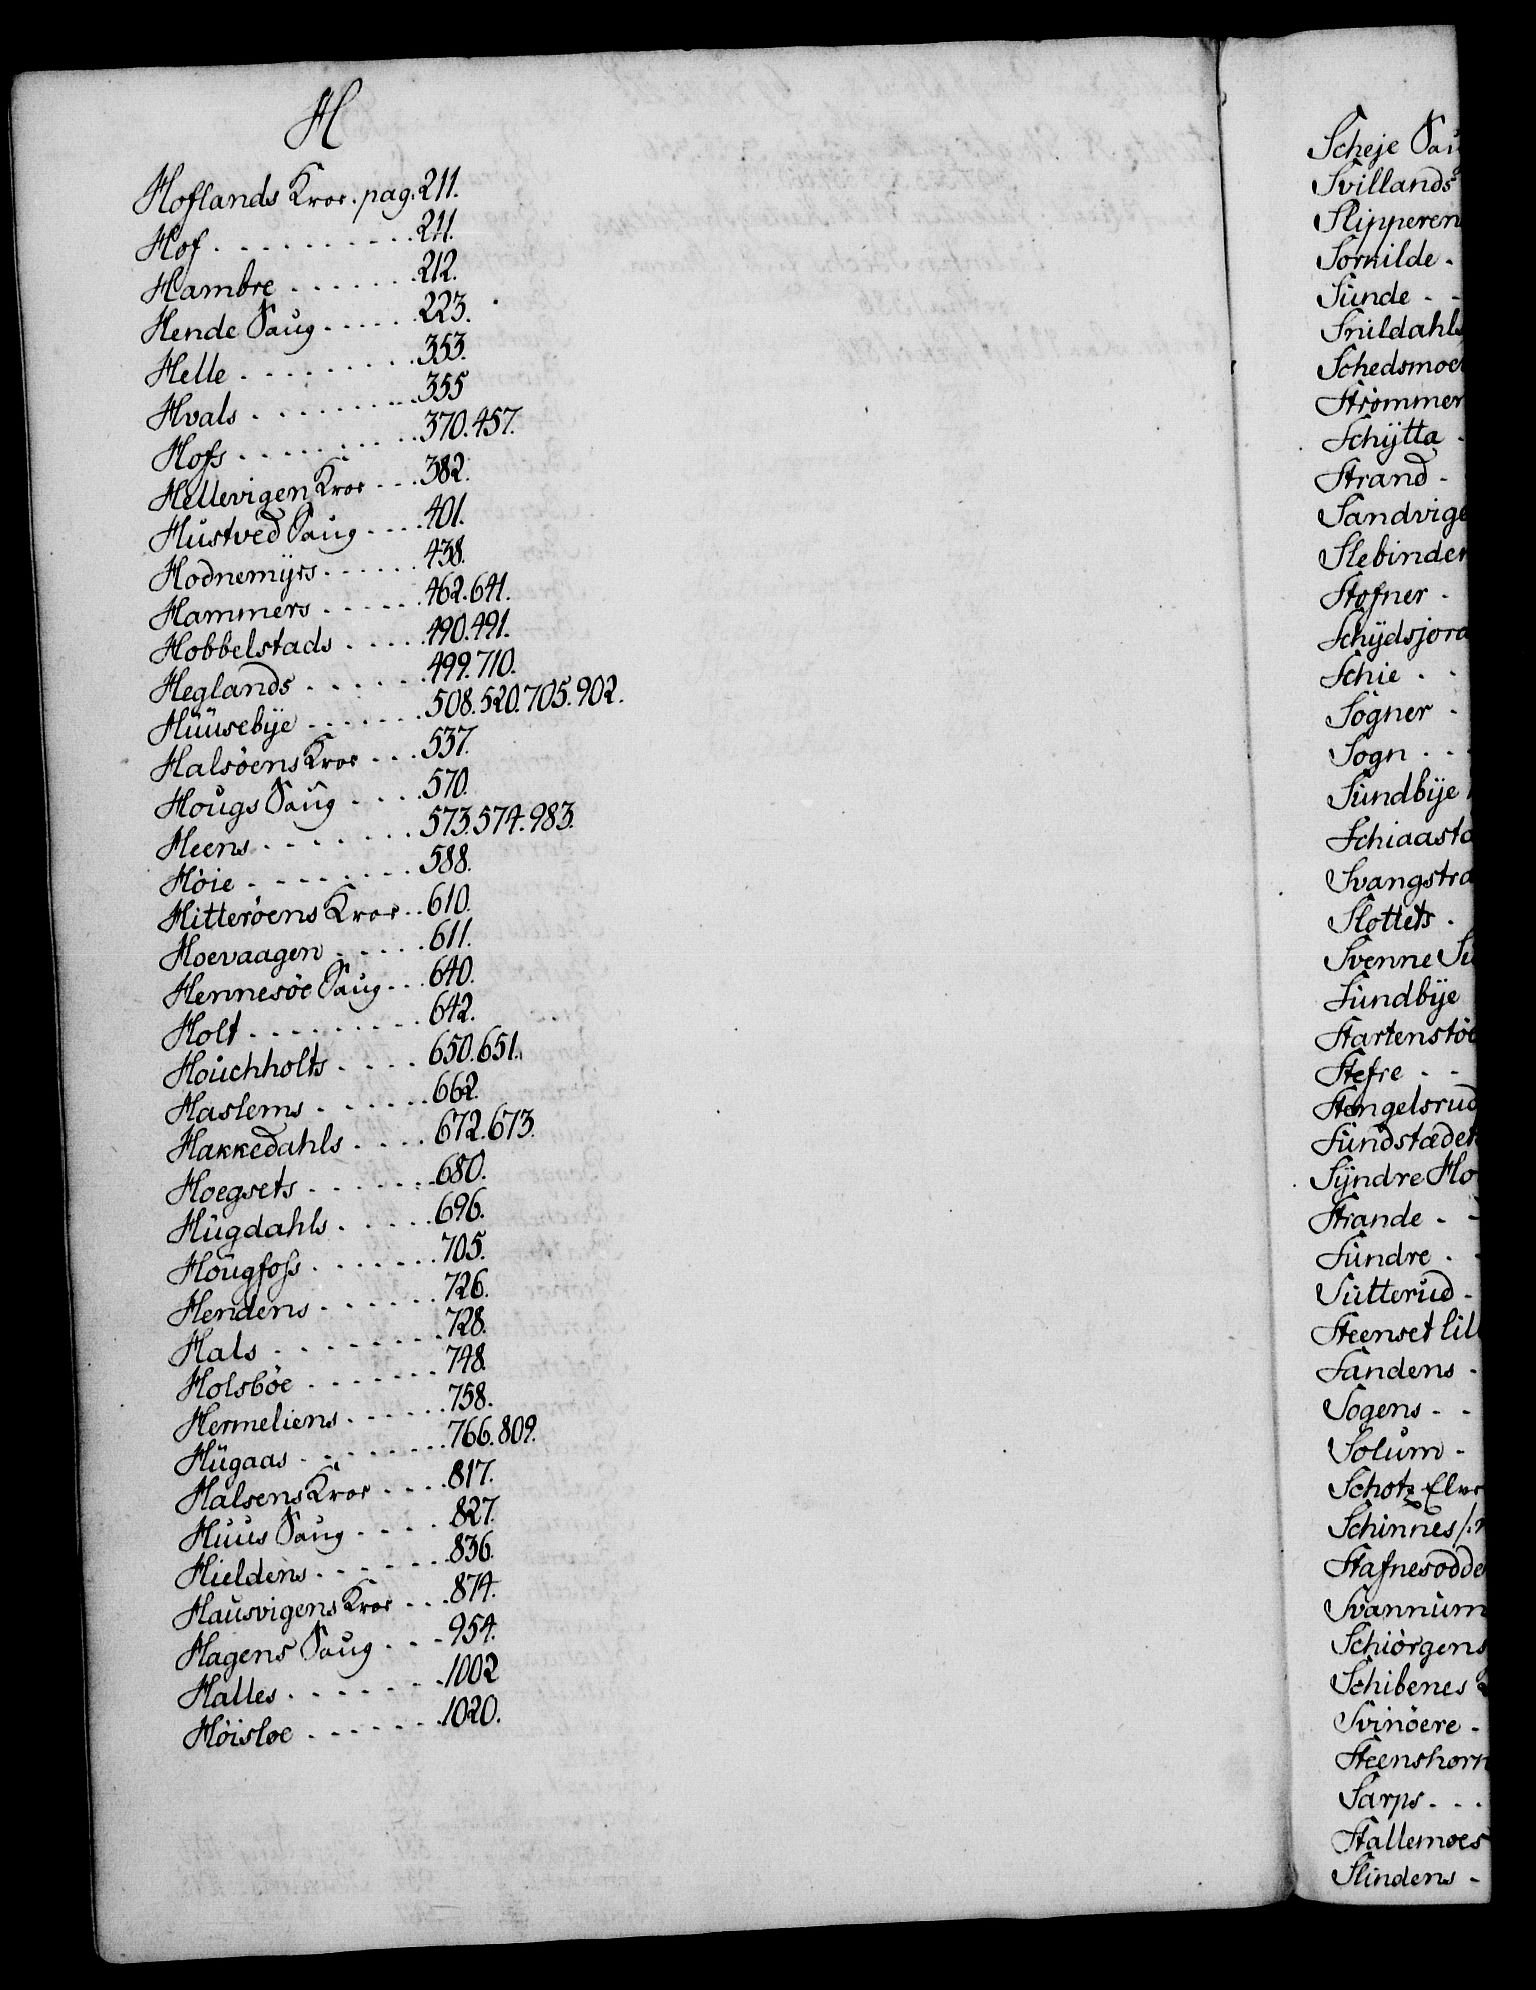 H
Hoflands Kroe. pag. 211.
Hof . . . . . . . . . . 211.
Hambre . . . . . . . 212.
Hende Saug . . . . . 223.
Helle . . . . . . . . . 353.
Hvals . . . . . . . . . 355
Hofs . . . . . . . . . 370. 457.
Hellevigen Kroe . . . 382.
Hustved Saug . . . . 401.
Hodnemÿrs . . . . . . 438.
Hammers . . . . . . 462. 641.
Hobbelstads . . . . . 490. 491.
Heglands . . . . . . . 499. 710.
Hüüsebÿe . . . . . . . 508. 520. 705. 902.
Halsöens Kroe . . . 537.
Hougs Saug . . . . 570.
Heens . . . . . . . . 573. 574. 983.
Høie . . . . . . . . . 588.
Hitterøens Kroe . . 610.
Hoevaagen . . . . . 611.
Hennesøe Saug . . . 640.
Holt . . . . . . . . . 642.
Houchholts . . . . 650. 651.
Haslems . . . . . . . 662.
Hakkedahls . . . . 672. 673.
Hoegsets . . . . . . . 680.
Hügdahls . . . . . 696.
Hougfoss . . . . . . . 705.
Hendens . . . . . . . 726.
Hals . . . . . . . . . 728.
Holsböe . . . . . . . 748.
Hermeliens . . . . . . 758.
Hügaas . . . . . . . . 766. 809.
Halsens Kroe . . . . 817.
Huus Saug . . . . 827.
Hieldens . . . . . . . 836.
Hausvigens Kroe . . . 874.
Hagens Saug . . . 954.
Halles . . . . . . . . 1002
Höisløe . . . . . . . 1020.
Scheje Sau
Svillands
Slipperen
Sornilde .
Sunde . .
Snildahls
Schedsmoe
Strømmer
Schÿtta .
Strand .
Sandvige
Slebinder
Stofner .
Schÿdsjord
Schie . .
Søgner .
Sogn . . .
Sundbÿe
Schiaasta
Svangstra
Slottets .
Svenne Su
Sundbÿe
Startenstöe
Stefre . .
Stengelsrud
Sundstædet
Sÿndre Ho
Strande . .
Sundre . .
Sutterud .
Steenset lil
Sandens .
Sogens . .
Solum .
Schotz Elve
Schinnes /: n
Stafnesodde
Svannum
Schiörgens
Schibenes K
Svinöere .
Steenshorn
Sarps . . .
Stallemoes
Slindens .